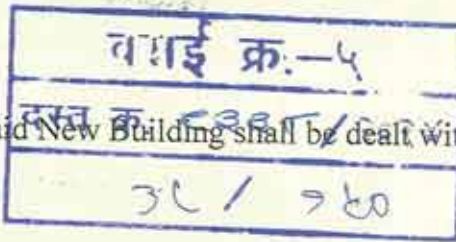 वसई क्र.-५
दस्त क्र.
aid New Building shall be dealt wit
३८ / १८०